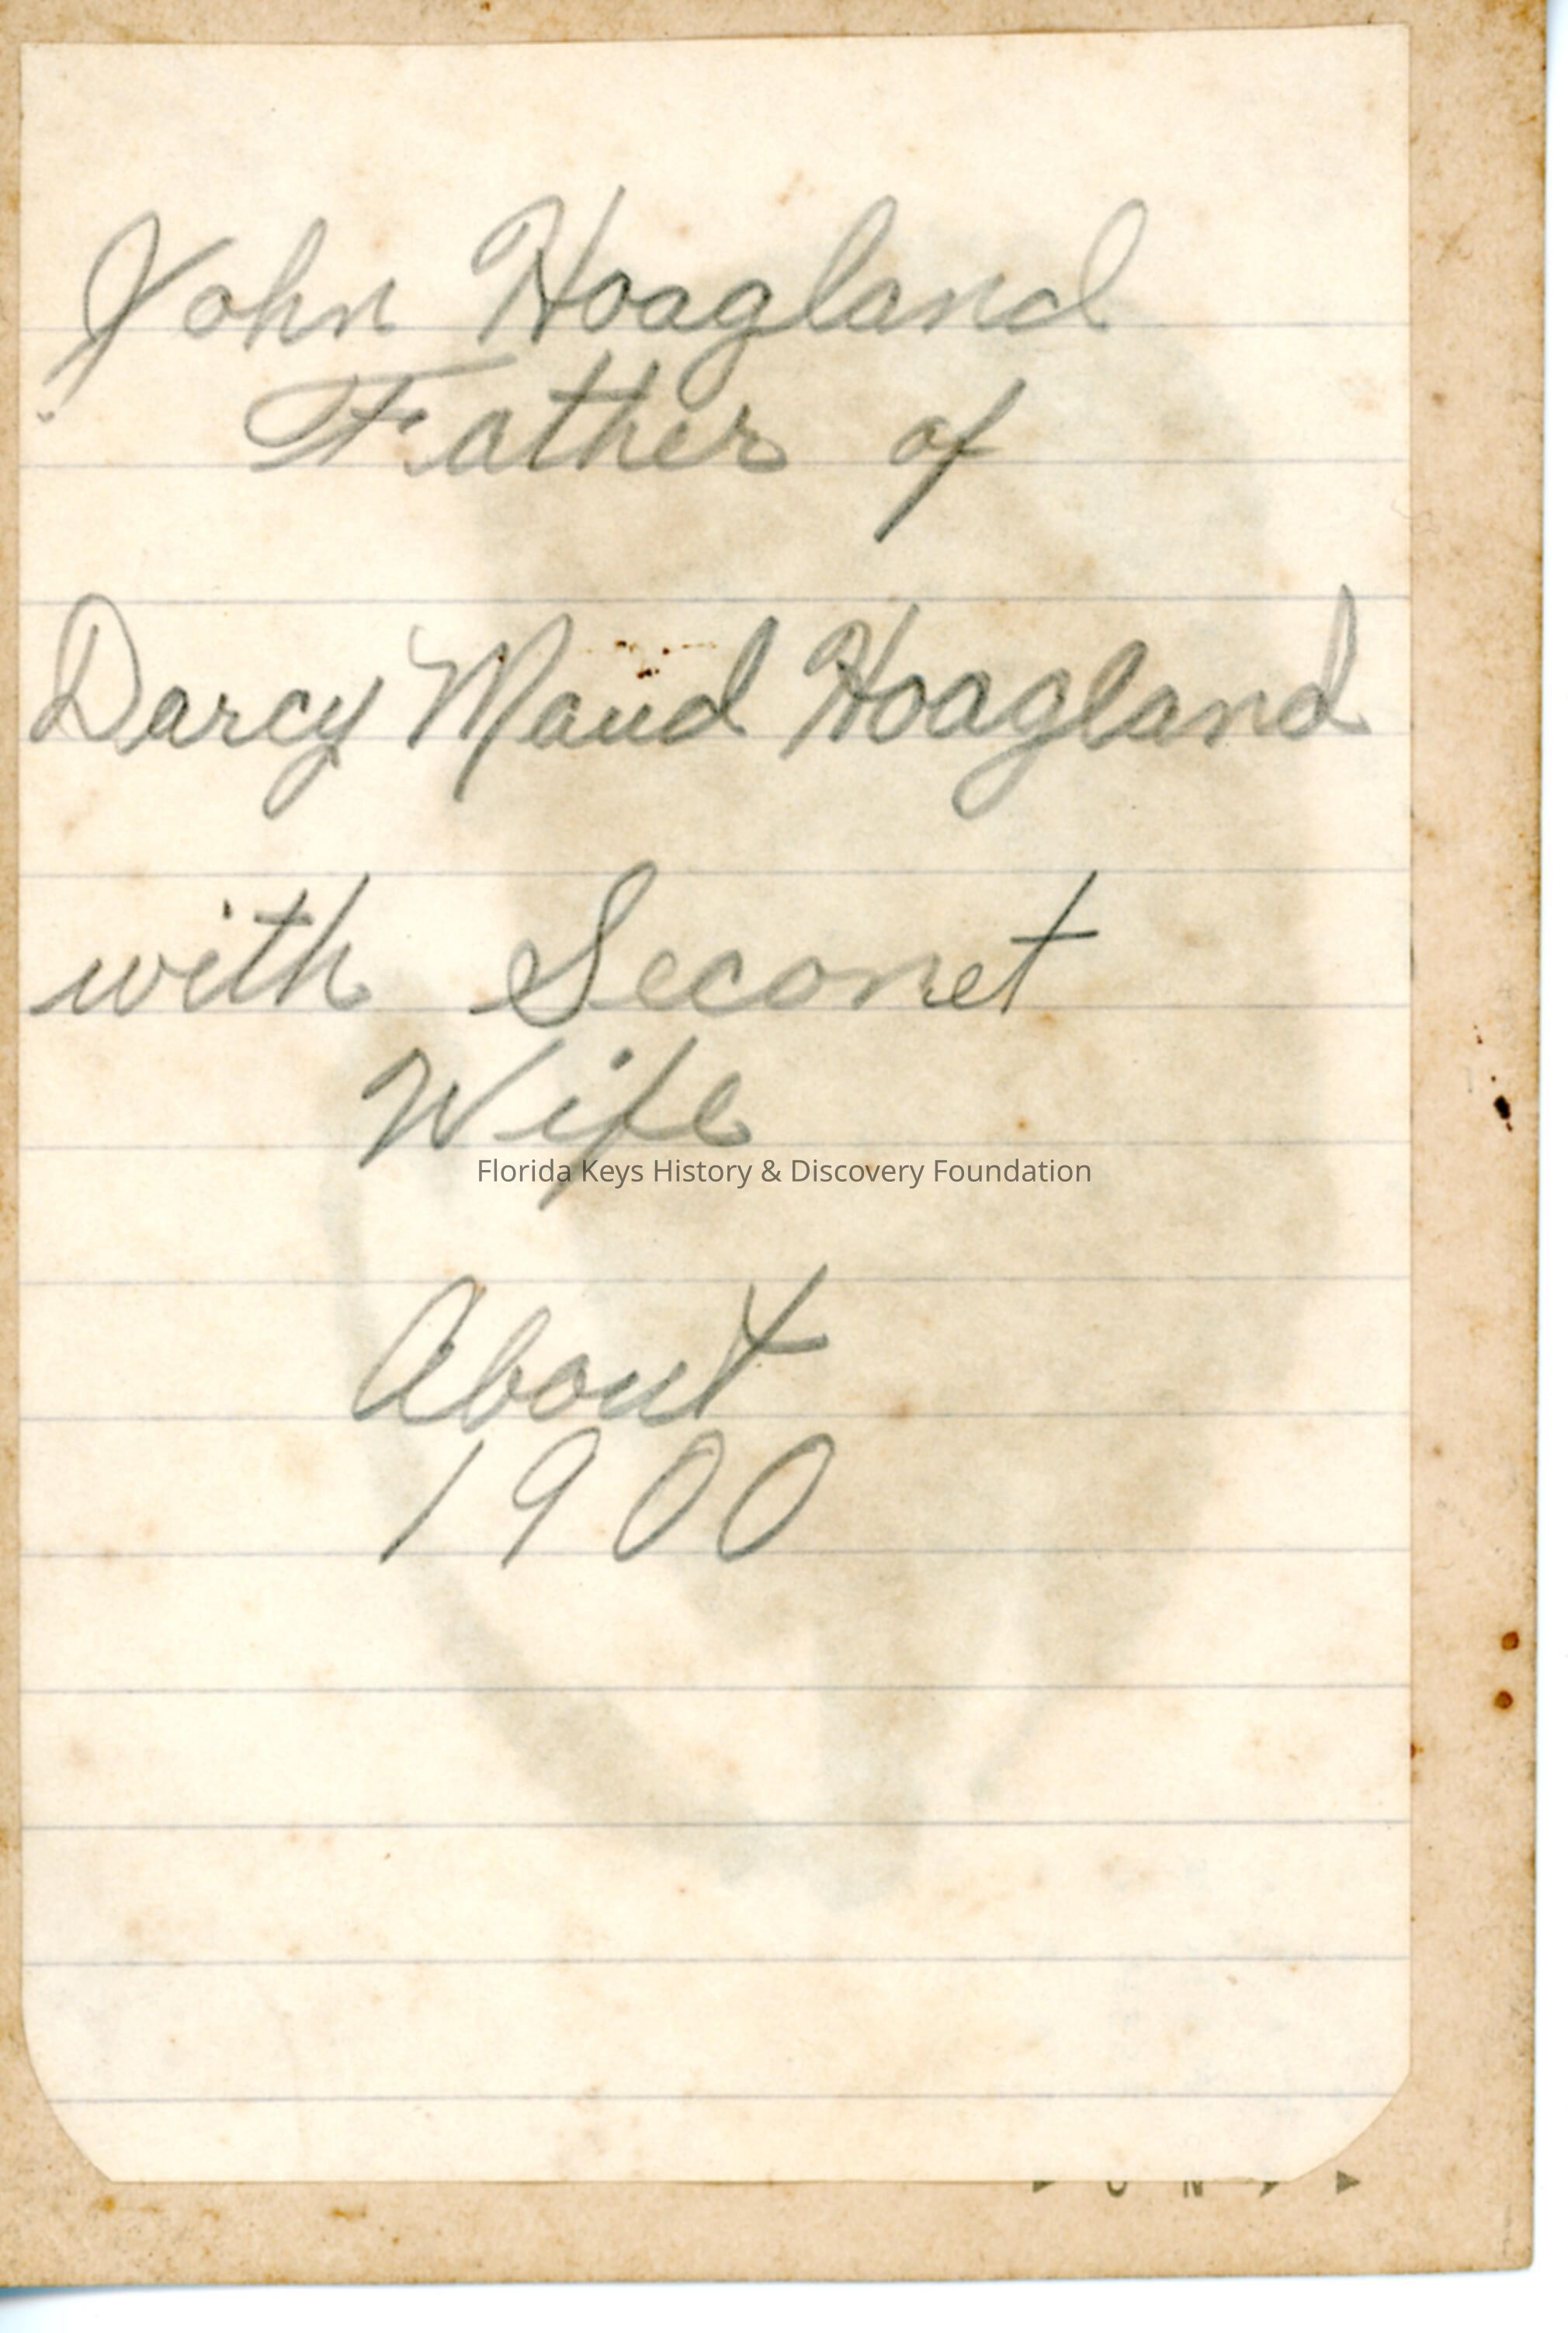 John Hoagland
Father of
Darcy Maud Hoagland
with Seconet
Wife
Florida Keys History & Discovery Foundation
About
1900